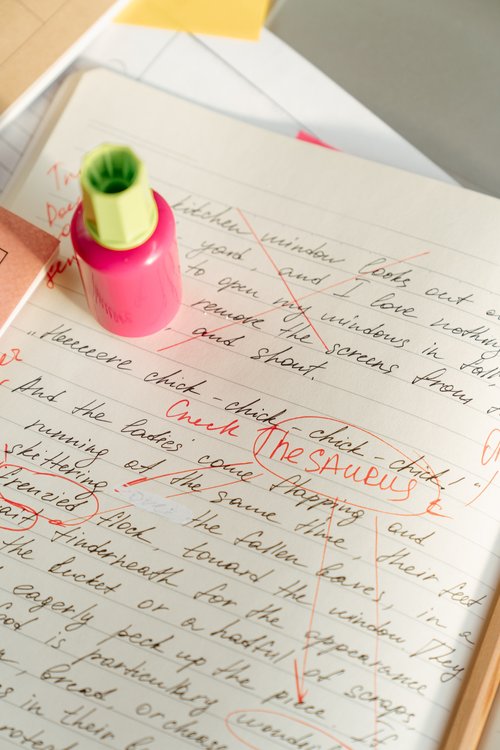 kitchen window looks out o
yard, and I love nothing
to open my windows in fall
remove the screens from
and shout.
"Heeeeere chick-chick-chick-chick-chick!"
Check TheSAURUS
And the ladies come flapping and
running at the same time, their feet
skittering the fallen leaves, in a
frenzied flock, toward the window. They
underneath for the appearance
the bucket or a hatful of scraps,
eagerly peck up the piece
is particulary
bread, or
in their